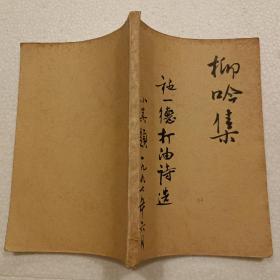 柳吟集
一德打油诗选
小莫题 一九六七年六月